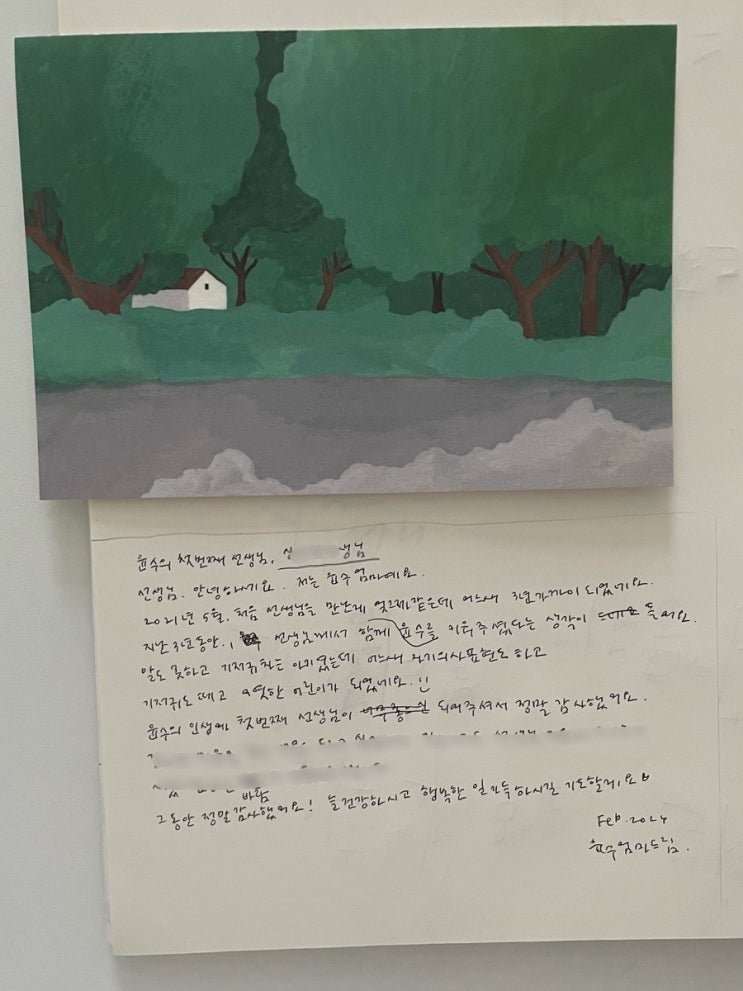 윤수의 첫번째 선생님, 신 생님
선생님. 안녕하세요. 저는 윤수엄마예요.
2021년 5월, 처음 선생님을 만난게 엊그제같은데 어느새 3년가까이 되었네요.
지난 3년동안, 선생님께서 함께 윤수를 키워주셨다는 생각이 들어요.
말도 못하고 기저귀차는 아기였는데 어느새 자기의사표현도 하고
기저귀도 떼고 어엿한 어린이가 되었네요.
윤수의 인생에 첫번째 선생님이 되어주셔서 정말 감사했어요.
그동안 정말 감사했어요! 늘 건강하시고 행복한 일 가득하시길 기도할게요
Feb. 2024
윤수엄마드림.